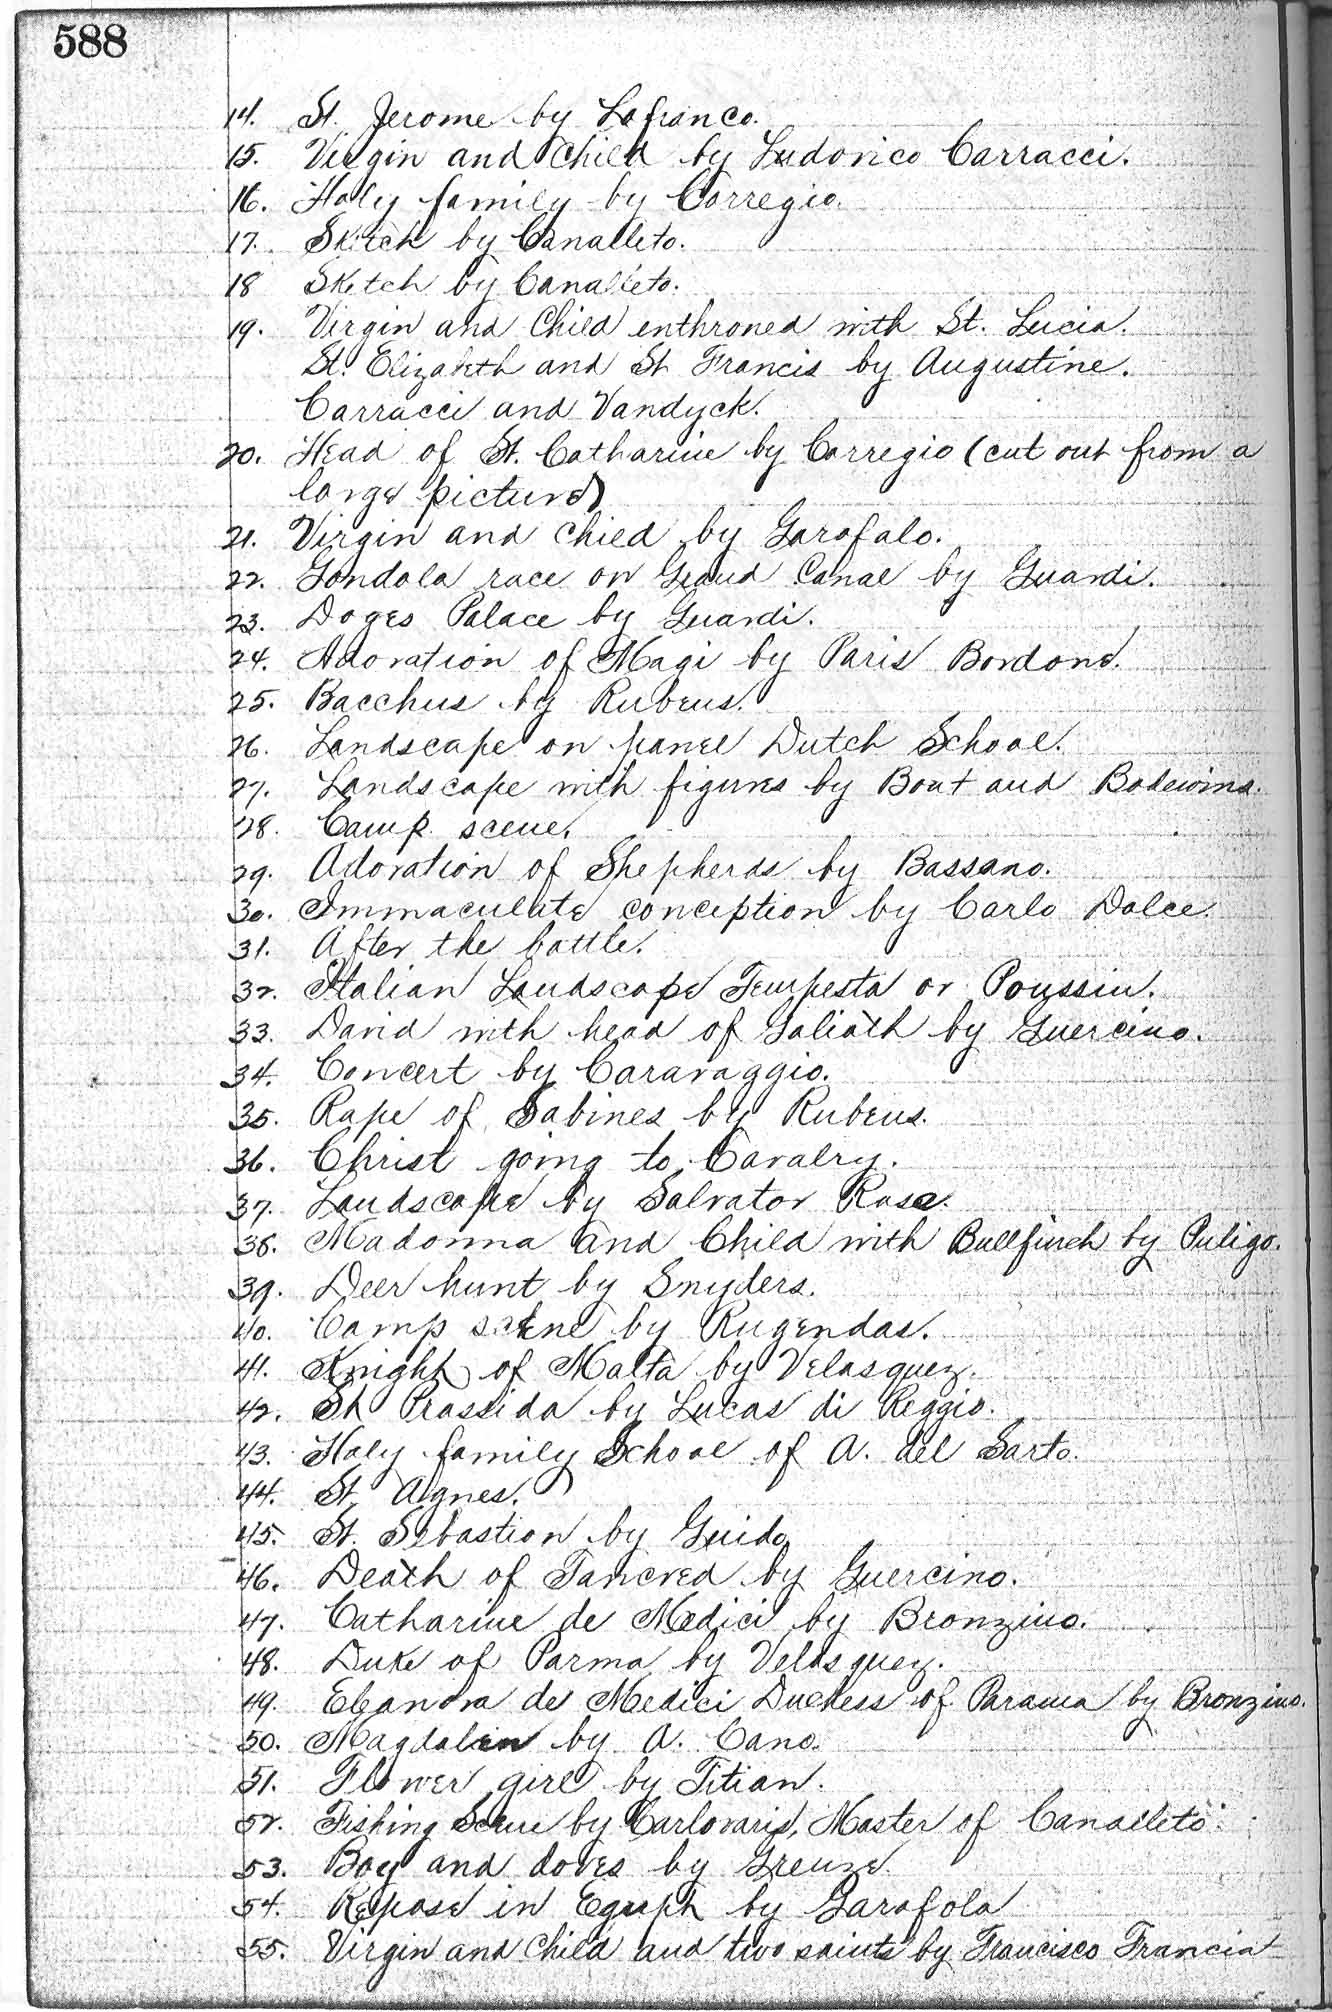 588
14. St. Jerome by Lafranco.
15. Virgin and Child by Ludovico Carracci.
16. Holy family by Corregio.
17. Sketch by Canalleto.
18 Sketch by Canalleto.
19. Virgin and Child enthroned with St. Lucia.
St. Elizabeth and St. Francis by Augustine.
Carracci and Vandyck.
20. Head of St. Catharine by Corregio (cut out from a
large picture)
21. Virgin and Child by Garofalo.
22. Gondola race on Grand Canal by Guardi.
23. Doges Palace by Guardi.
24. Adoration of Magi by Paris Bordone.
25. Bacchus by Rubens.
26. Landscape on panel Dutch School.
27. Landscape with figures by Bout and Bodewins.
28. Camp scene.
29. Adoration of Shepherds by Bassano.
30. Immaculate conception by Carlo Dolce.
31. After the battle.
32. Italian Landscape Tempesta or Poussin.
33. David with head of Goliath by Guercino.
34. Concert by Caravaggio.
35. Rape of Sabines by Rubens.
36. Christ going to Cavalry.
37. Landscape by Salvator Rosa.
38. Madonna and Child with Bullfinch by Puligo.
39. Deer hunt by Snyders.
40. Camp scene by Rugendas.
41. Knight of Malta by Velasquez.
42. St. Prassida by Lucas di Reggio.
43. Holy family School of A. del Sarto.
44. St. Agnes.
45. St. Sebastion by Guido
46. Death of Tancred by Guercino.
47. Catharine de Medici by Bronzino.
48. Duke of Parma by Velasquez.
49. Eleanora de Medici Duchess of Parama by Bronzino.
50. Magdalen by A. Cano.
51. Flower girl by Titian.
52. Fishing Scene by Carlovaris, Master of Canalleto.
53. Boy and doves by Greuze.
54. Repose in Egyph by Garafola
55. Virgin and Child and two saints by Francisco Francia